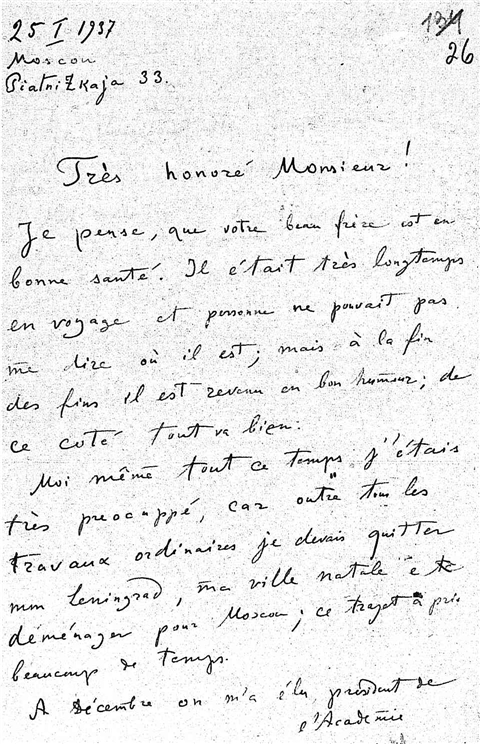 25 I 1937
26
Moscou
Piatnizkaja 33.
Très honoré Monsieur!
Je pense, que votre beau frère est en
bonne santé. Il était très longtemps
en voyage et personne ne pouvait pas
me dire où il est; mais à la fin
des fins il est revenu en bon humeur; de
ce coté tout va bien.
Moi même tout ce temps j'étais
très preocuppé, car outre tous les
travaux ordinaires je devais quitter
Leningrad, ma ville natale e
déménager pour Moscou; ce trajet a pris
beaucoup de temps.
A décembre on m'a élu président de
l'Académie